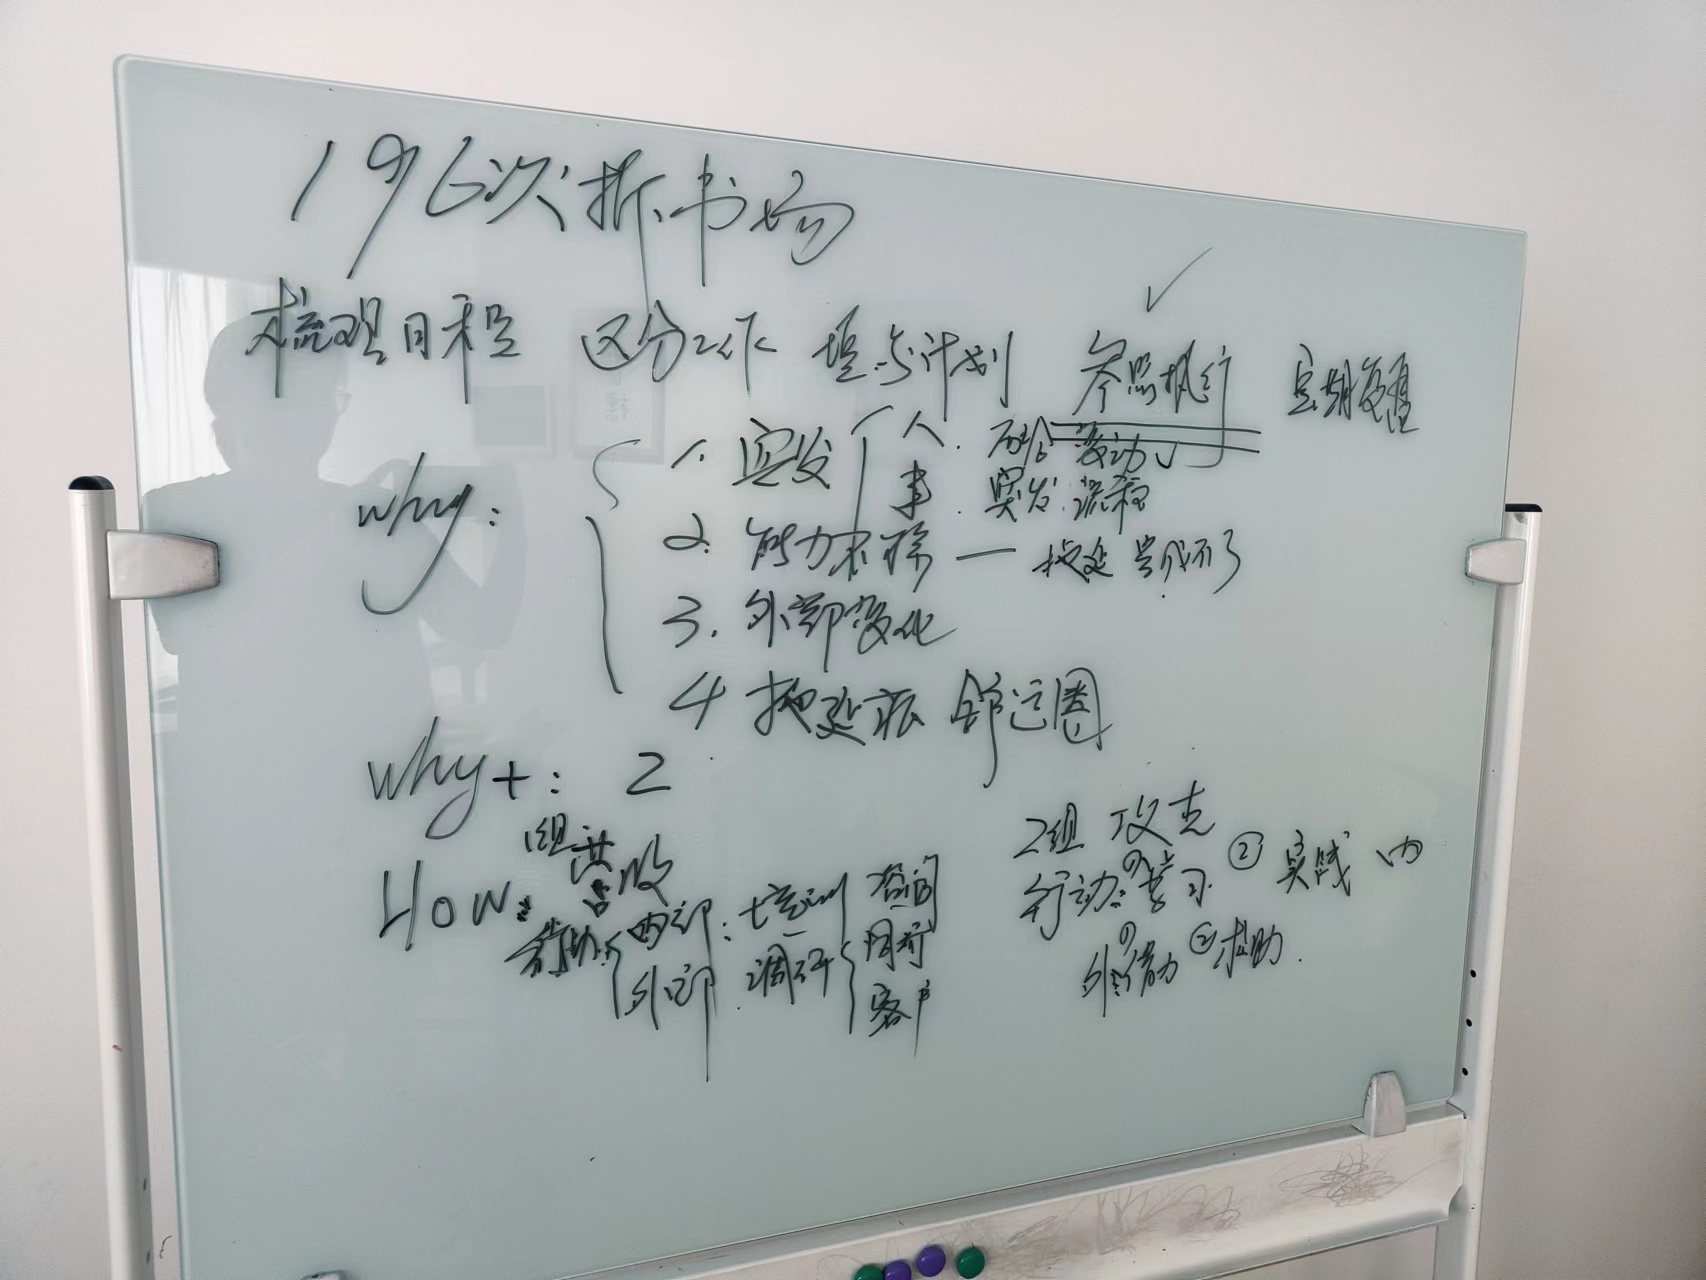 196次拆书场
梳理日程 区分工作 填写计划 参照执行 定期复盘
why:
1. 突发 人. 变动
事. 突发 流程
2. 能力 — 拖延 完成不了
3. 外部变化
4 拖延症 舒适圈
why+: 2
How.
1组 共
内部: 培训
外部. 调研
咨询
同行
客户
2组 攻克
行动: ①学习. ②实践 内
外 ①借力 ②求助.